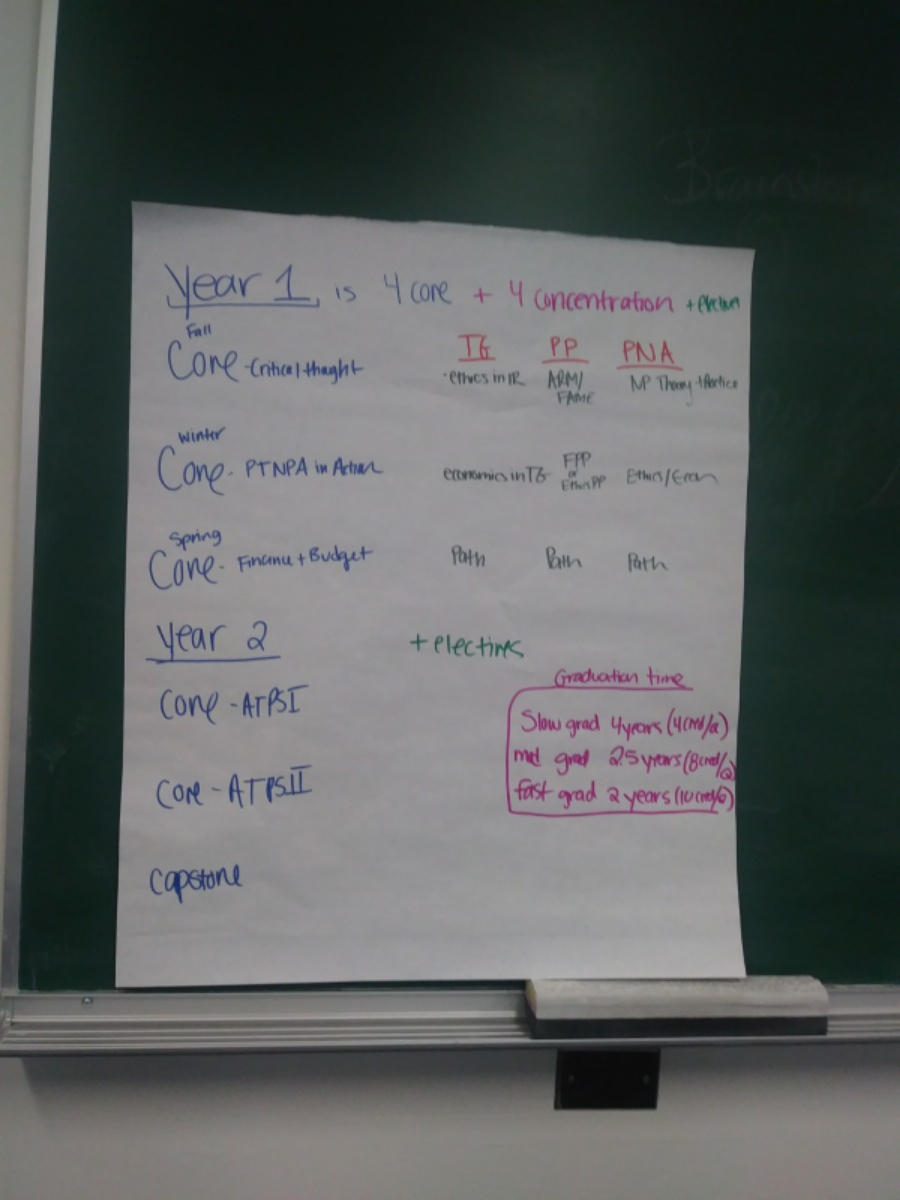 Year 1 is 4 core + 4 concentration + election
Fall
Core - Critical thaght TG PP PNA
· ethics in IR ARM/ NP Theory + Partice
FAME
Winter
Core - PTNPA in Action economics in TG FPP Ethics/Econ
or
Ethics PP
Spring
Core - Finance + Budget Path Path Path
Year 2 + electives
Graduation time
Core - ATPSI Slow grad 4 years (4 cred/q)
med grad 2.5 years (8 cred/q)
Core - ATPSII fast grad 2 years (10 cred/q)
Capstone